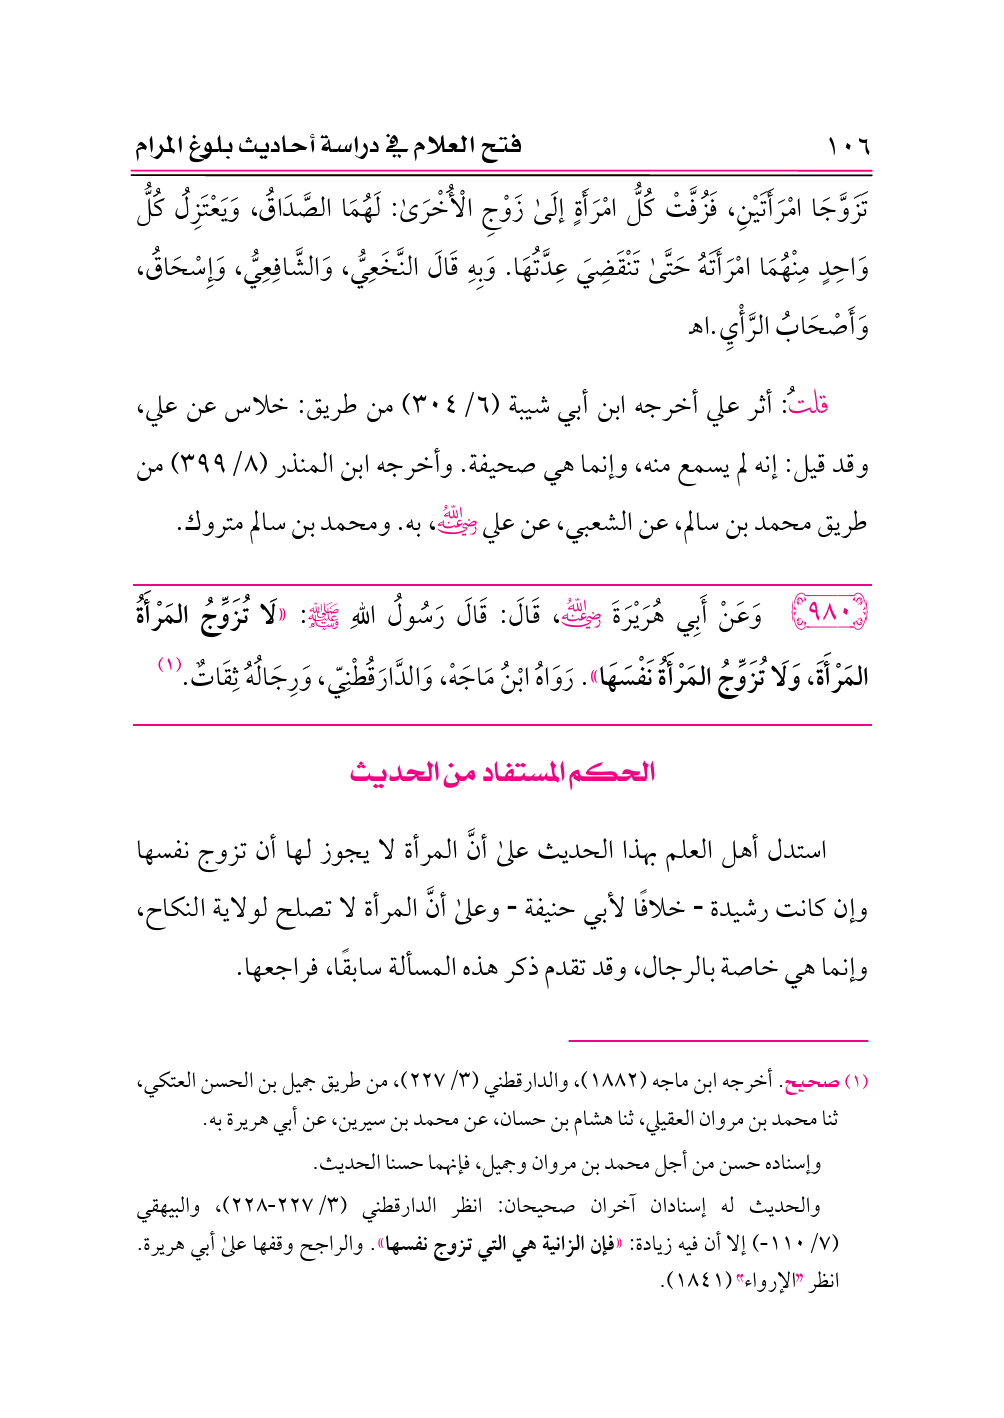 ١٠٦ فتح العلام في دراسة أحاديث بلوغ المرام
تَزَوَّجَا امْرَأَتَيْنِ، فَزُفَّتْ كُلُّ امْرَأَةٍ إلَىٰ زَوْجِ الْأُخْرَىٰ: لَهُمَا الصَّدَاقُ، وَيَعْتَزِلُ كُلُّ
وَاحِدٍ مِنْهُمَا امْرَأَتَهُ حَتَّىٰ تَنْقَضِيَ عِدَّتُهَا. وَبِهِ قَالَ النَّخَعِيُّ، وَالشَّافِعِيُّ، وَإِسْحَاقُ،
وَأَصْحَابُ الرَّأْيِ.اهـ
قلتُ: أثر علي أخرجه ابن أبي شيبة (٦/ ٣٠٤) من طريق: خلاس عن علي،
وقد قيل: إنه لم يسمع منه، وإنما هي صحيفة. وأخرجه ابن المنذر (٨/ ٣٩٩) من
طريق محمد بن سالم، عن الشعبي، عن علي رضي الله عنه، به. ومحمد بن سالم متروك.
٩٨٠ وَعَنْ أَبِي هُرَيْرَةَ رضي الله عنه، قَالَ: قَالَ رَسُولُ اللهِ ﷺ: «لَا تُزَوِّجُ المَرْأَةُ
المَرْأَةَ، وَلَا تُزَوِّجُ المَرْأَةُ نَفْسَهَا». رَوَاهُ ابْنُ مَاجَهْ، وَالدَّارَقُطْنِيّ، وَرِجَالُهُ ثِقَاتٌ.(١)
الحكم المستفاد من الحديث
استدل أهل العلم بهذا الحديث علىٰ أنَّ المرأة لا يجوز لها أن تزوج نفسها
وإن كانت رشيدة - خلافًا لأبي حنيفة - وعلىٰ أنَّ المرأة لا تصلح لولاية النكاح،
وإنما هي خاصة بالرجال، وقد تقدم ذكر هذه المسألة سابقًا، فراجعها.
(١) صحيح. أخرجه ابن ماجه (١٨٨٢)، والدارقطني (٣/ ٢٢٧)، من طريق جميل بن الحسن العتكي،
ثنا محمد بن مروان العقيلي، ثنا هشام بن حسان، عن محمد بن سيرين، عن أبي هريرة به.
وإسناده حسن من أجل محمد بن مروان وجميل، فإنهما حسنا الحديث.
والحديث له إسنادان آخران صحيحان: انظر الدارقطني (٣/ ٢٢٧-٢٢٨)، والبيهقي
(٧/ ١١٠-) إلا أن فيه زيادة: «فإن الزانية هي التي تزوج نفسها». والراجح وقفها علىٰ أبي هريرة.
انظر "الإرواء" (١٨٤١).